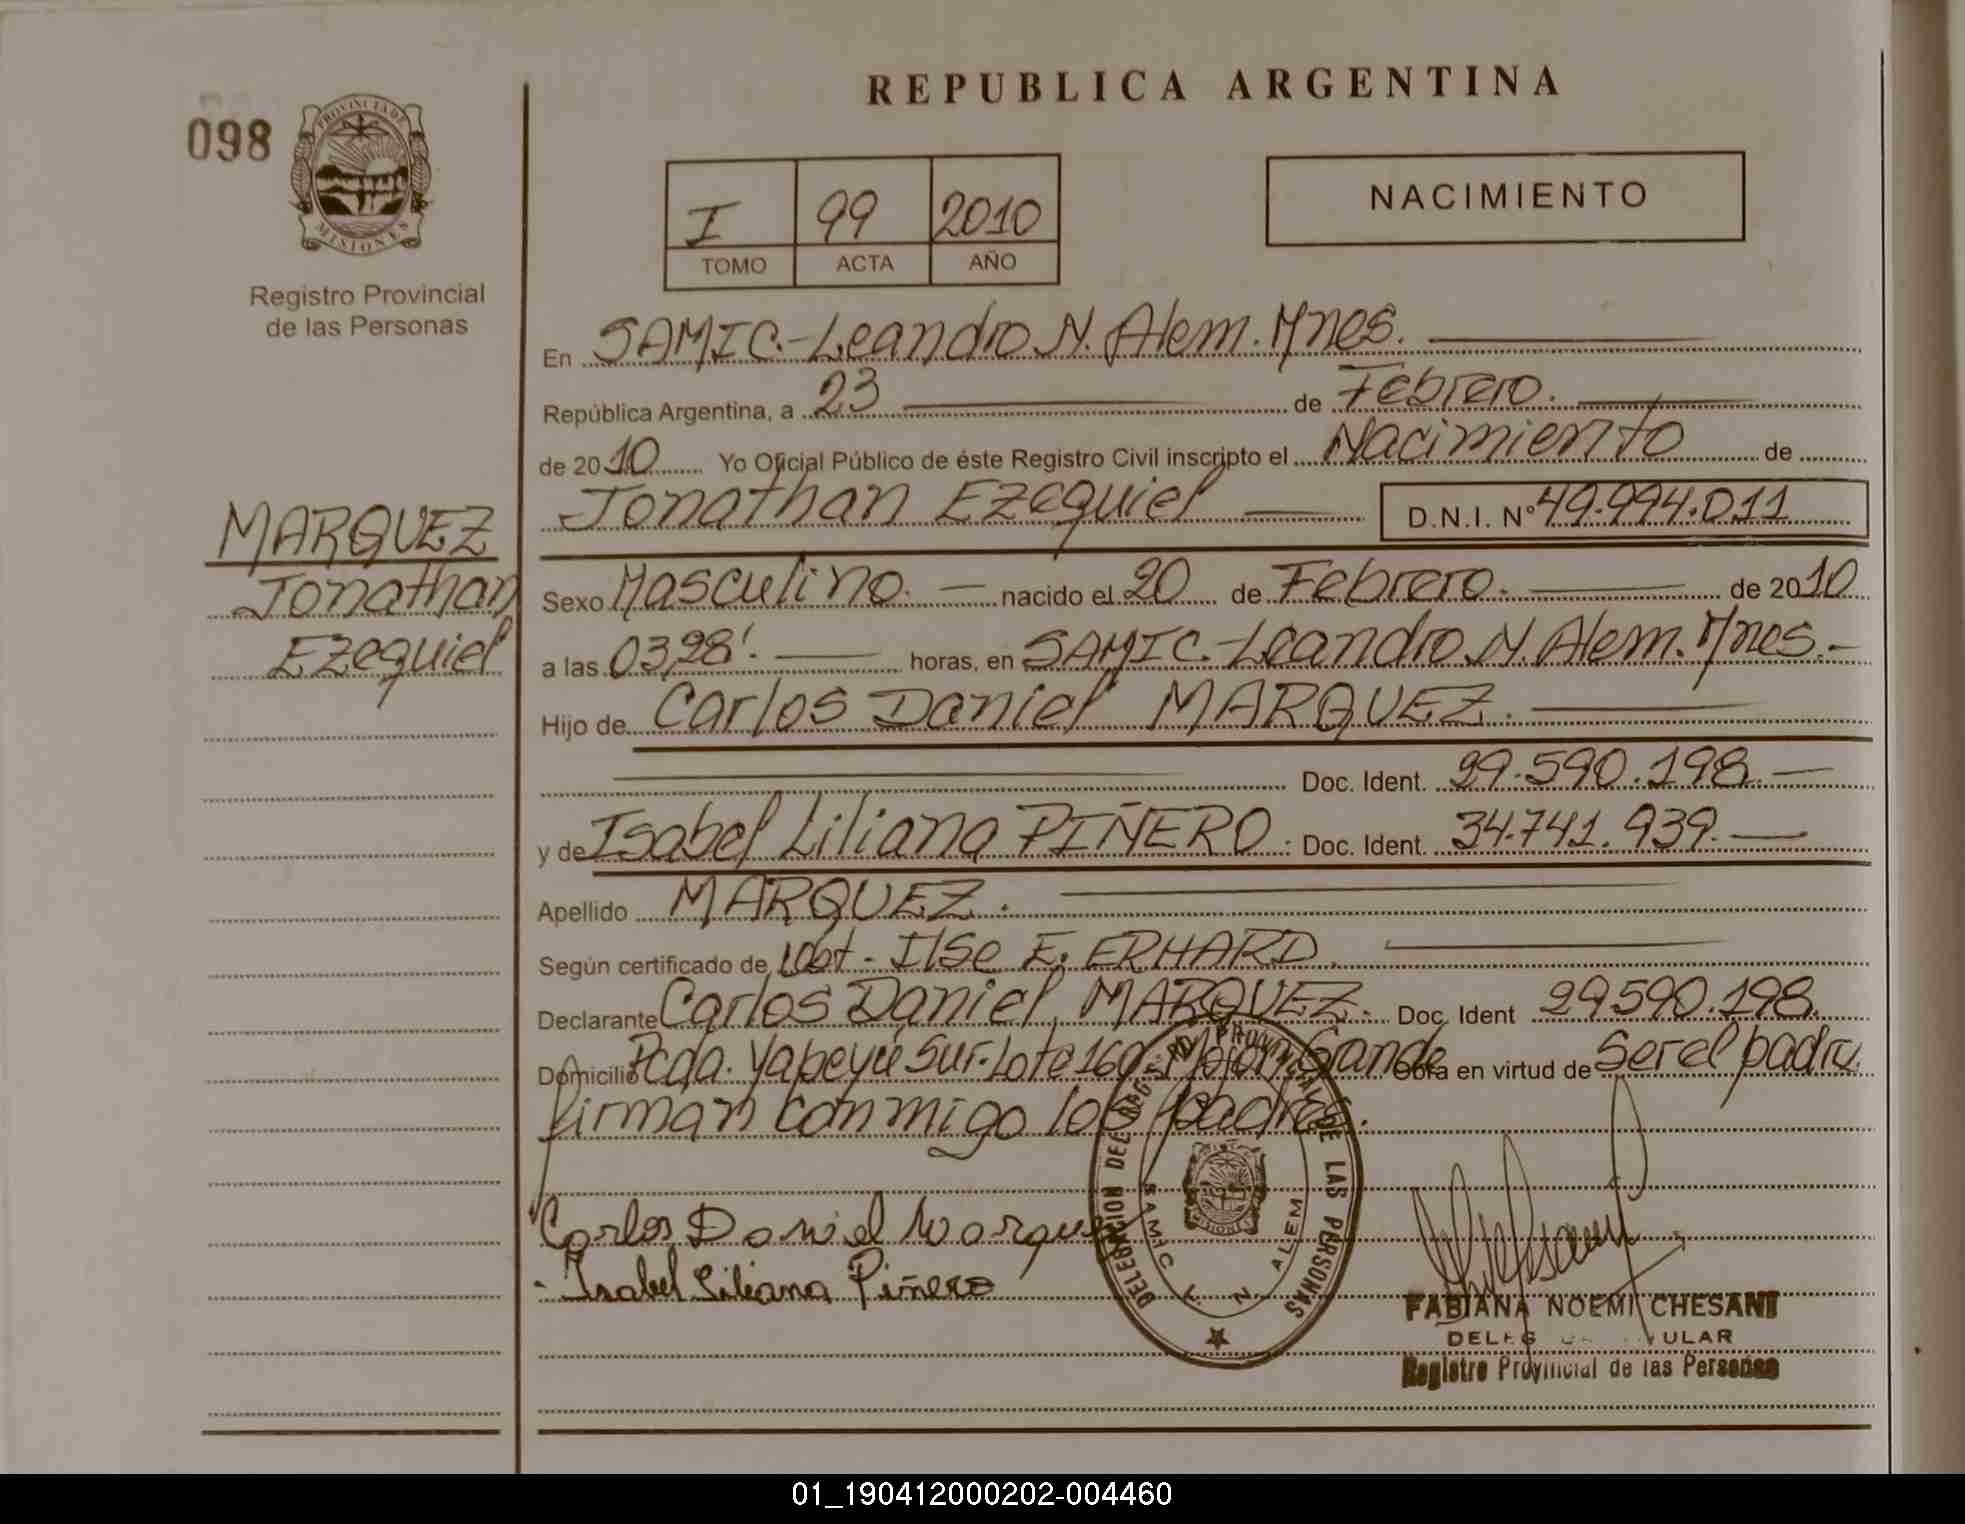 098
PROVINCIA DE
MISIONES
Registro Provincial
de las Personas
MARQUEZ
Jonathan
Ezequiel
REPUBLICA ARGENTINA
I 99 2010
TOMO ACTA AÑO
NACIMIENTO
En SAMIC.-Leandro N. Alem. Mnes.
República Argentina, a 23 de Febrero.
de 2010 Yo Oficial Público de éste Registro Civil inscripto el Nacimiento de
Jonathan Ezequiel D.N.I. Nº 49.994.011
Sexo Masculino. nacido el 20 de Febrero. de 2010
a las 03,28'. horas, en SAMIC.-Leandro N. Alem. Mnes.-
Hijo de Carlos Daniel MARQUEZ.
Doc. Ident. 29.590.198.
y de Isabel Liliana PIÑERO. Doc. Ident. 34.741.939.
Apellido MARQUEZ.
Según certificado de Obst.- Ilse E. ERHARD.
Declarante Carlos Daniel MARQUEZ. Doc. Ident 29590.198.
Domicilio Pcda. Yapeyú Sur-Lote 160- Grande Obra en virtud de Ser el padre
firman conmigo los padres.
Carlos Daniel Marquez
Isabel Liliana Piñero
DELEGACION DEL REG. PROVINCIAL DE LAS PERSONAS
SAMIC L. N. ALEM
MISIONES
FABIANA NOEMI CHESANI
Registro Provincial de las Personas
01_190412000202-004460